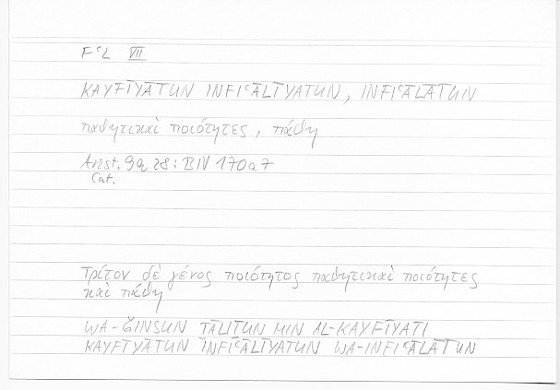 FʿL VII
KAYFĪYĀTUN INFIʿĀLĪYATUN, INFIʿĀLĀTUN
παθητικαὶ ποιότητες, πάθη
Arist. 9a28: BIV 170a7
Cat.
Τρίτον δὲ γένος ποιότητος παθητικαὶ ποιότητες
καὶ πάθη
WA-ǦINSUN ṮĀLIṮUN MIN AL-KAYFĪYATI
KAYFĪYĀTUN INFIʿĀLĪYATUN WA-INFIʿĀLĀTUN